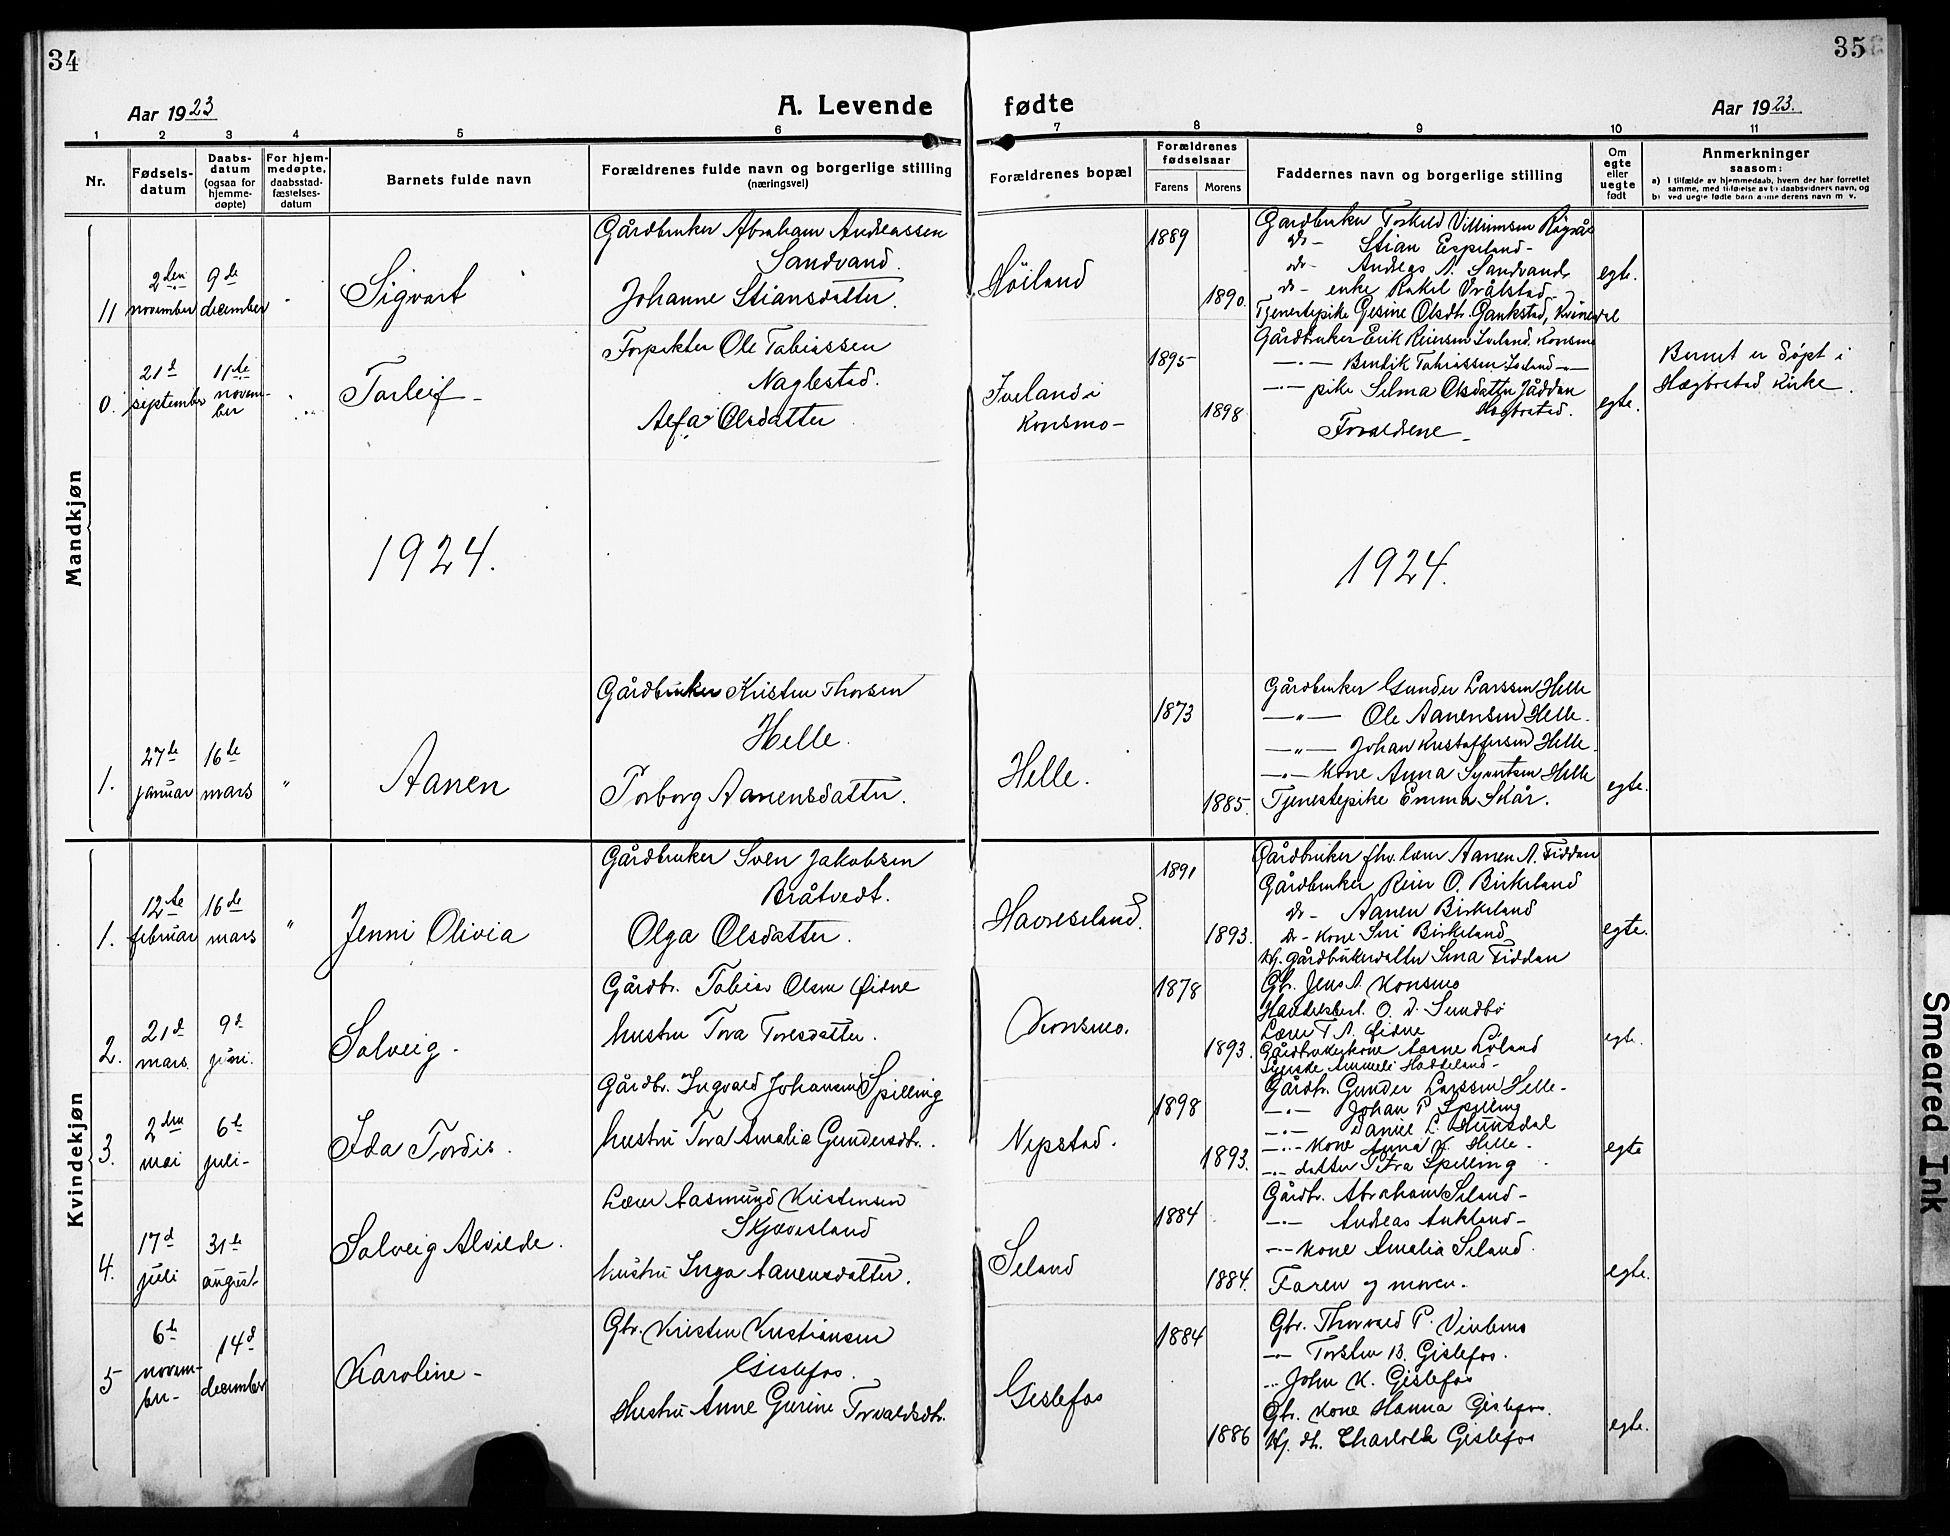 34
35
Aar 1923
A. Levende
fødte
Aar 1923.
1 2 3 4 5 6 7 8 9 10 11
Nr.
Fødsels-
datum
Daabs-
datum
(ogsaa for
hjemme-
døpte)
For hjem-
medøpte,
daabsstad-
fæstelses-
datum
Barnets fulde navn
Forældrenes fulde navn og borgerlige stilling
(næringsvei)
Forældrenes bopæl
Forældrenes
fødselsaar
Farens
Morens
Faddernes navn og borgerlige stilling
Om
egte
eller
uegte
født
Anmerkninger
saasom:
a) I tilfælde av hjemmedaab, hvem der har forrettet
samme, med tilføielse av to daabsvidners navn, og
b) ved uegte fødte barn anmelderens navn m. v.
Mandkjøn
11
2den
november
9de
december
"
Sigvart
Gårdbruker Abraham Andreassen
Sandvand.
Johanne Stiansdatter.
Høiland
1889
1890.
Gårdbruker Torkild Villumsen
do - Stian Espeland -
do - Andreas A. Sandvand
do - enke Rakel Vrålstad
Tjenestepike Gesine Olsdtr. Gankstad, Kvinesdal
egte.
0.
21d
september
11te
novem-
ber
"
Torleif -
Forpakter Ole Tobiassen
Naglestad.
Alfa Olsdatter
Iveland i
Konsmo -
1895
1898
Gårdbruker Erik Reiersen Iveland, Konsmo
-"- Bendik Tobiassen Iveland -"-
-"- pike Selma Olsdatter Jåddan
Hægbostad.
Forældrene -
egte.
Barnet er døpt i
Hægbostad Kirke.
1924.
1924.
1.
27de
januar
16de
mars
"
Aanen
Gårdbruker Kristen Thorsen
Helle.
Torborg Aanensdatter.
Helle.
1873
1885.
Gårdbruker Gunder Larssen Helle
-"- Ole Aanensen Helle.
-"- Johan Kristoffersen Helle.
-"- kone Anna Syvertsen Helle
Tjenestepike Emma Skår.
egte.
Kvindekjøn
1.
12te
februar
16de
mars
"
Jenni Olivia
Gårdbruker Sven Jakobsen
Bråtvedt.
Olga Olsdatter.
Havreseland.
1891
1893.
Gårdbruker fhv. lærer Aanen A. Fiddan
Gårdbruker Reier O. Birkeland
do - Aanen Birkeland
do - kone Siri Birkeland
Hj. gårdbrukerdatter Sina Fiddan
egte.
2.
21d
mars
9d
juni.
Solveig -
Gårdbr. Tobias Olsen Øidne
hustru Tora Toresdatter.
Konsmo.
1878
1893.
Gbr. Jens A. Konsmo
Handelsbest. O. D. Sundbø
Lærer T. A. Øidne
Gårdbrukerkone Aasne Löland
Syerske Ammeli Hadseland -
egte.
3.
2den
mai
6te
juli -
Ida Tordis.
Gårdbr. Ingvald Johansen Spilling
hustru Tora Amalia Gundersdtr.
Nepstad.
1898
1893.
Gårdbr. Gunder Larssen Helle -
-"- Johan P. Spilling
-"- Daniel L. Hunsdal
-"- kone Anna K. Helle -
-"- datter Petra Spilling
egte
4.
17d
juli
31te
august
Solveig Alvilde.
Lærer Aasmund Kristensen
Skjævesland
hustru Inga Aanensdatter.
Seland
1884
1884.
Gårdbr. Abraham Seland -
-"- Andreas Aukland -
-"- kone Amalia Seland.
Faren og moren.
egte.
5
6te
novem-
ber -
14d
december
Karoline -
Gbr. Kristen Kristiansen
Gislefos.
Hustru Anne Gurine Torvaldsdtr.
Gislefos
1884
1886
Gbr. Thorvald P. Vivlemo
-"- Torsten B. Gislefos.
-"- John K. Gislefos
Gbr. kone Hanna Gislefos.
Hj. dt. Charlotte Gislefos
egte.
Smeared Ink